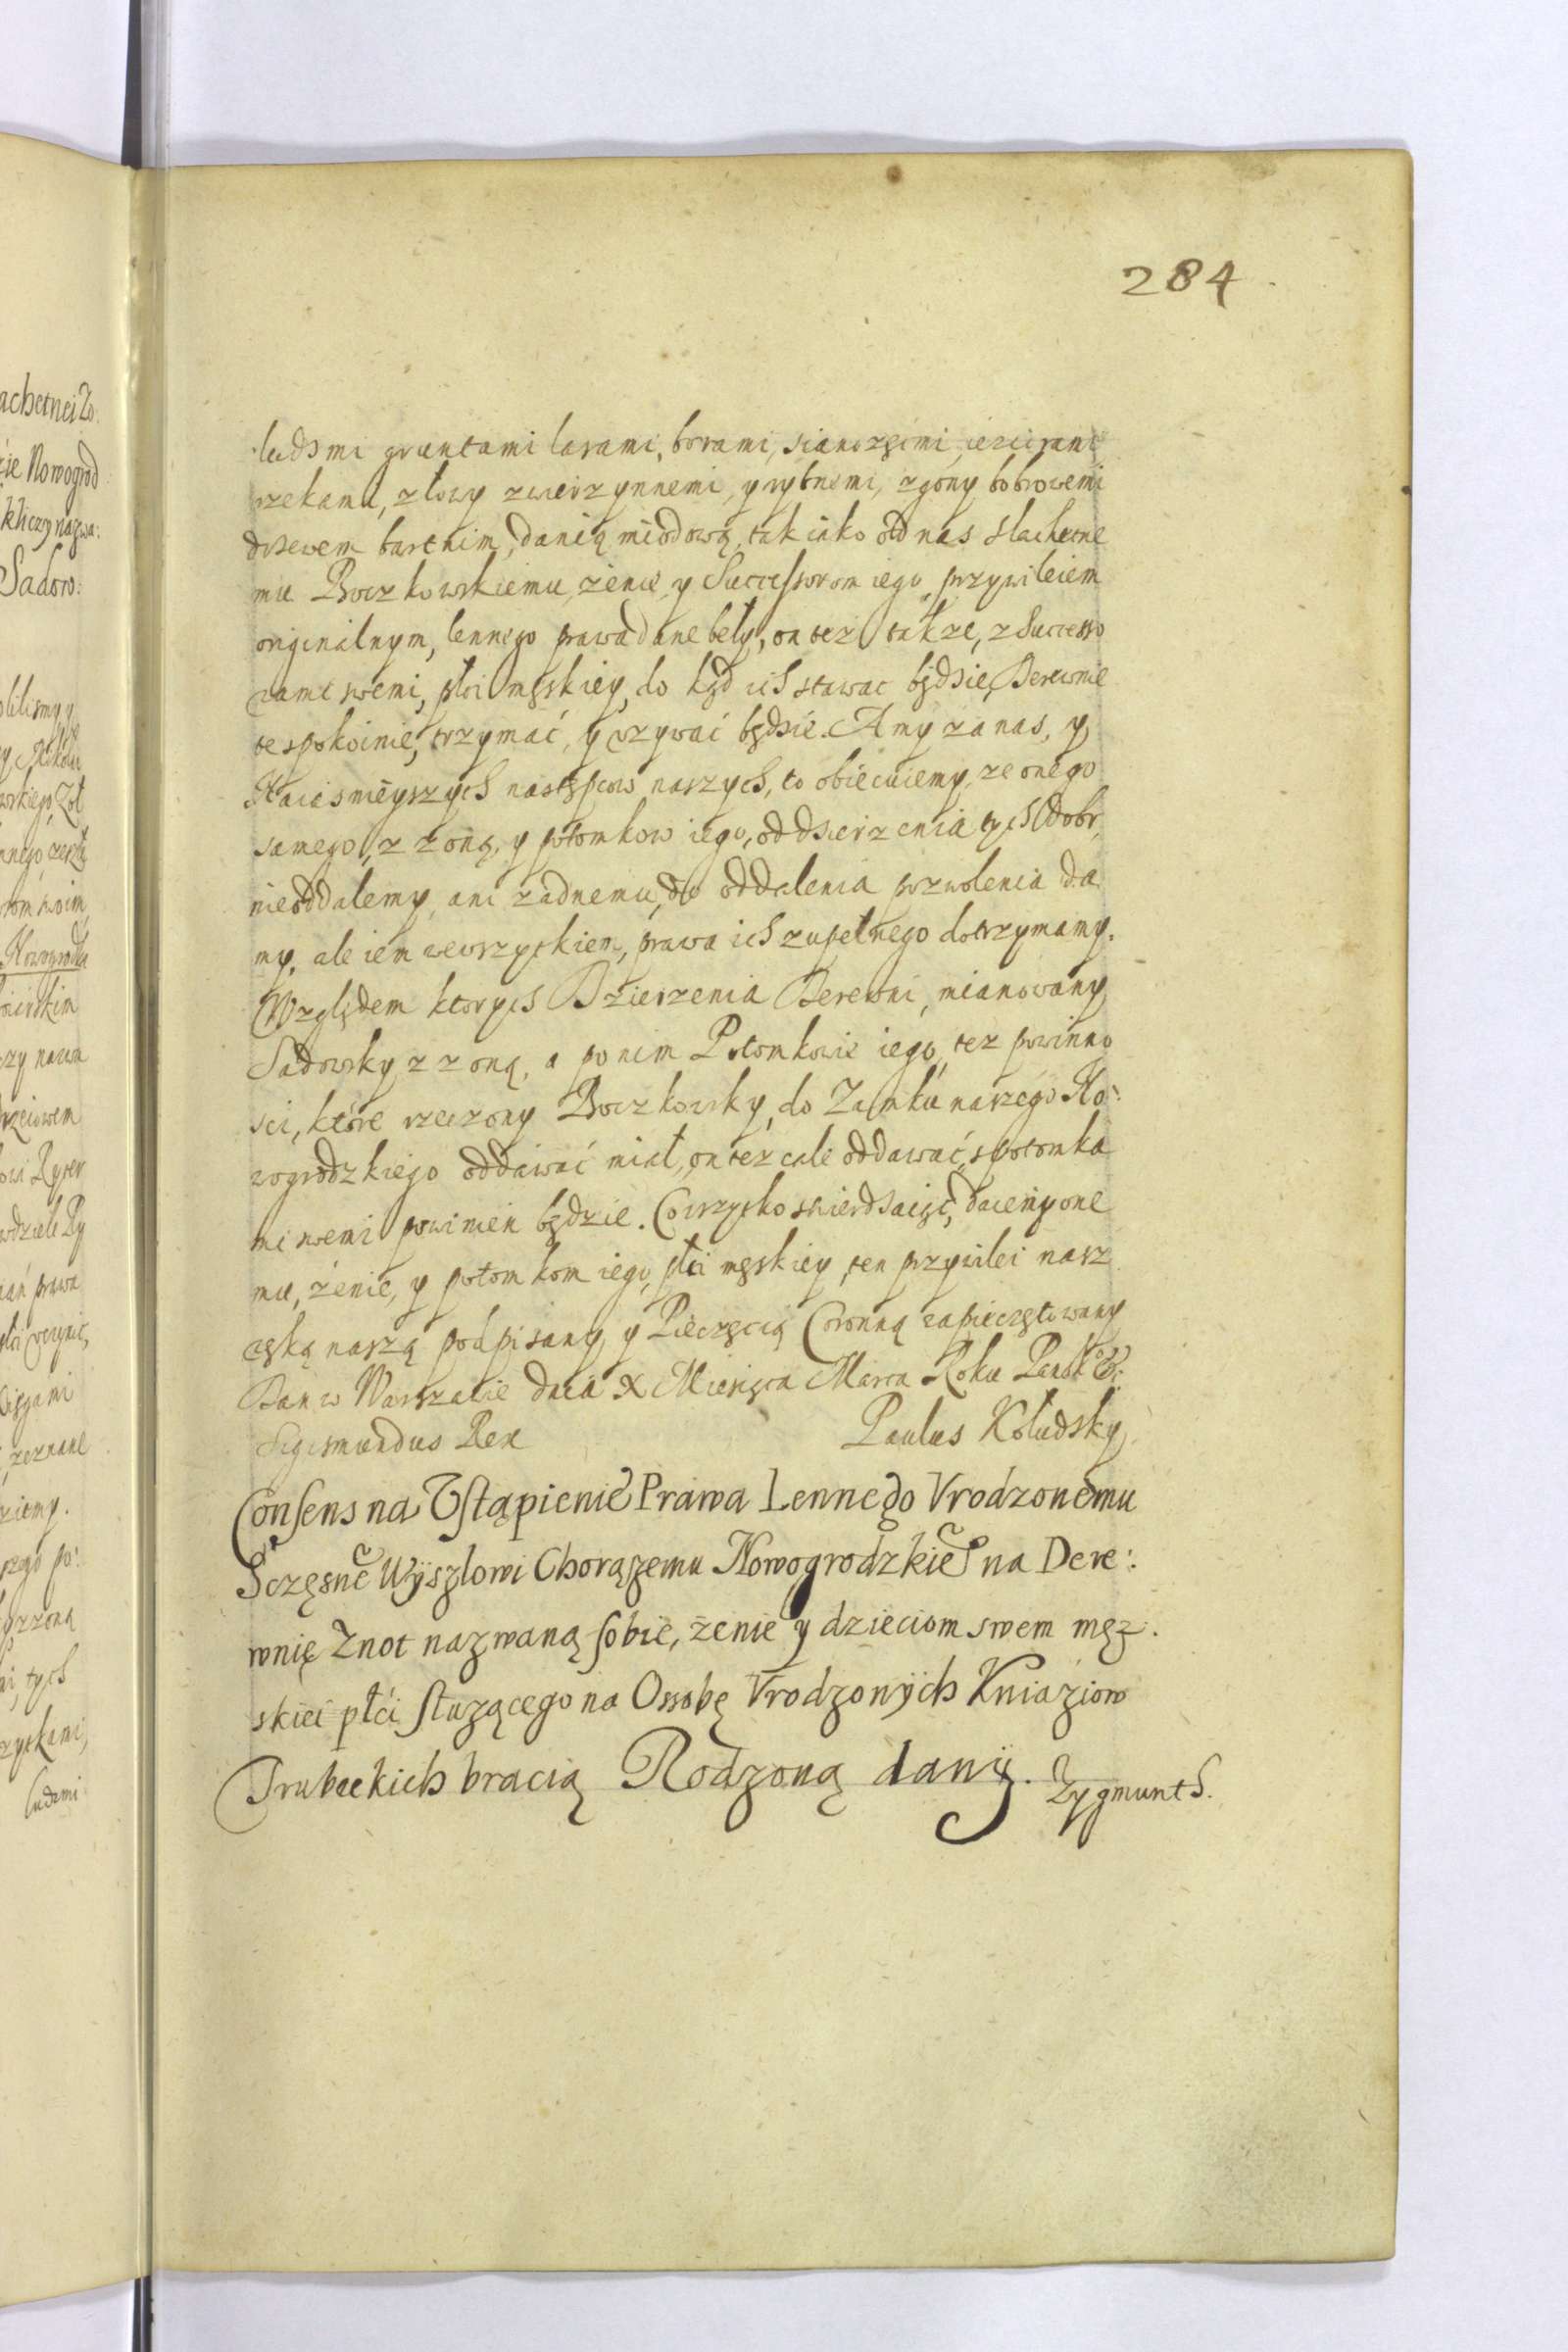 284
ludzmi gruntami lasami, borami, sianozęćmi, iezeirami
rzekami, z łowy zwierzynnemi, y rybnemi, z gony bobrowemi
drzewem bartnim, danią miodową, tak iako od nas slachetne
mu Boczkowskiemu, żenie, y Successorom iego, przywileiem
originalnym, lennego prawa dane beły, on też także, z Successo
rami swemi, płci męskiey, do kąd ich stawac będzie, Derewnie
te spokoinie, trzymać, y vzywać będzie. A my za nas, y
Naiasnieyszych następcow naszych, to obiecuiemy, ze onego
samego, z żoną, y potomkow iego, od dzierzenia tych dobr,
nieoddalemy, ani zadnemu, do oddalenia pozwolenia da
my, ale iem wewszyckiem, prawa ich zupełnego dotrzymamy.
Względem ktorych Dzierzenia Derewni, mianowany
Sadowsky z żoną, a po nim Potomkowie iego, też powinno
sci, które rzeczony Boczkowsky, do Zamku naszego No:
wogrodzkiego oddawać miał, on też cale oddawać, s potomka
mi swemi powinien będzie. Co wszycko stwierdzaiąc, daiemy one
mu, żenie, y potomkom iego, płci męskiey, ten przywilei nasz
ręką naszą podpisany y Pieczęcią Coronną zapieczętowany
Dan w Warszawie dnia X Miesiąca Marca Roku Pansko &c:
Sigismundus Rex Paulus Kołudsky
Consens na Vstąpienie Prawa Lennego Vrodzonemu
Sczęsne Wÿszlowi Chorążemu Nowogrodzkie na Dere:
wnię Znot nazwaną sobie, żenie y dzieciom swem męz.
skiei płći służącego na Ossobę Vrodzonÿch Kniaziow
Trubeckich bracią Rodzoną danÿ. Zygmunt S.
achetnei Zo:
zie Nowogrod
kliczy nazwa:
Sadow:
olilismy y
wskiego, Zoł
Nowogrodu
czy nasza
nań prawa
zeznane
dziemy.
szego po:
y z żoną
mi, tych
ludzmi